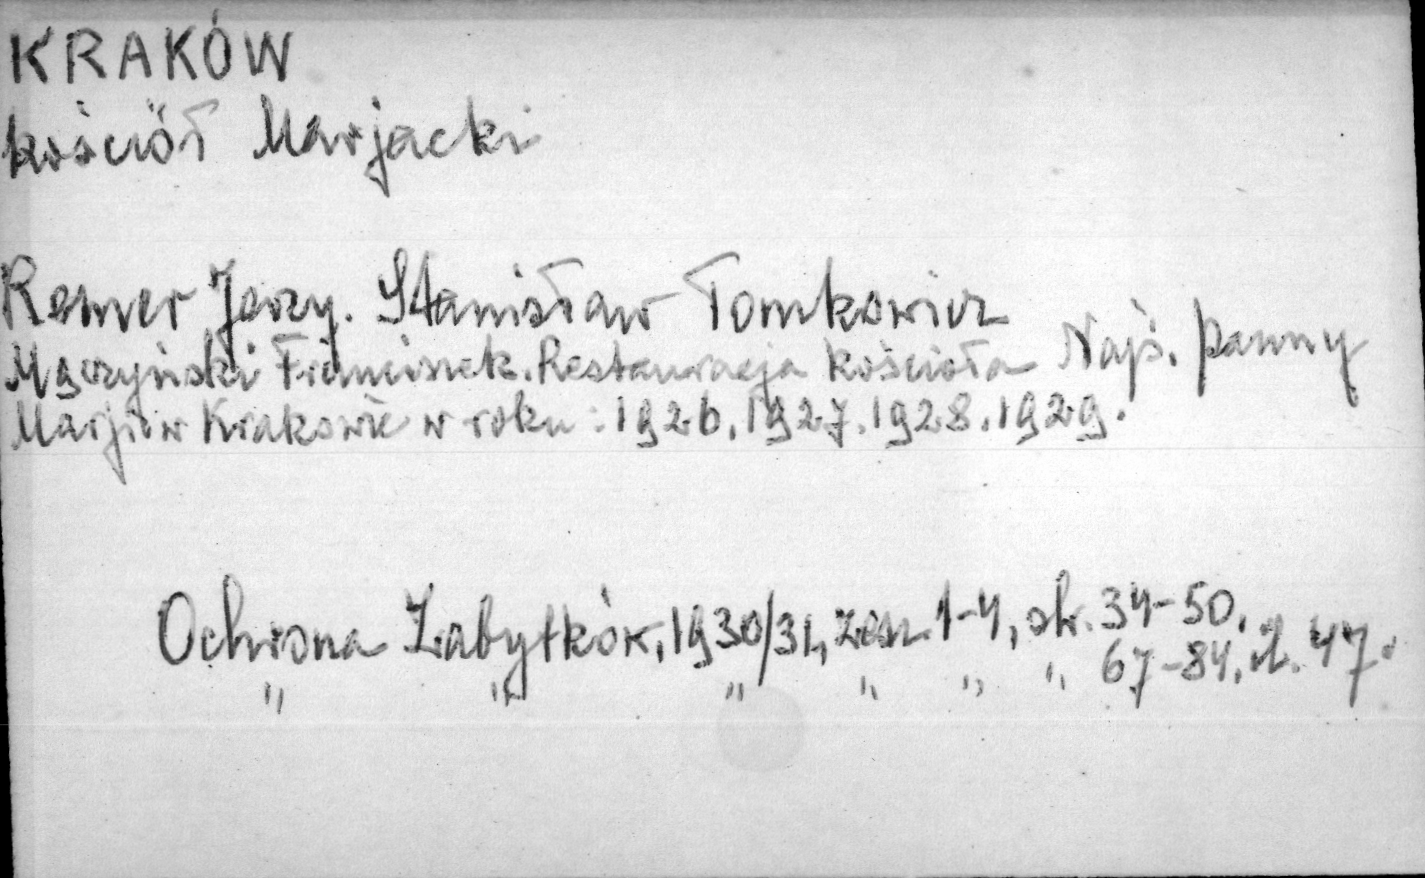 KRAKÓW
kościół Marjacki
Remer Jerzy. Stanisław Tomkowicz
Mączyński Franciszek. Restauracja kościoła Najś. Panny
Marji w Krakowie w roku: 1926. 1927. 1928. 1929.
Ochrona Zabytków, 1930/31, zesz. 1-4, str. 34-50.
" " " " " " 67-84. il. 47.